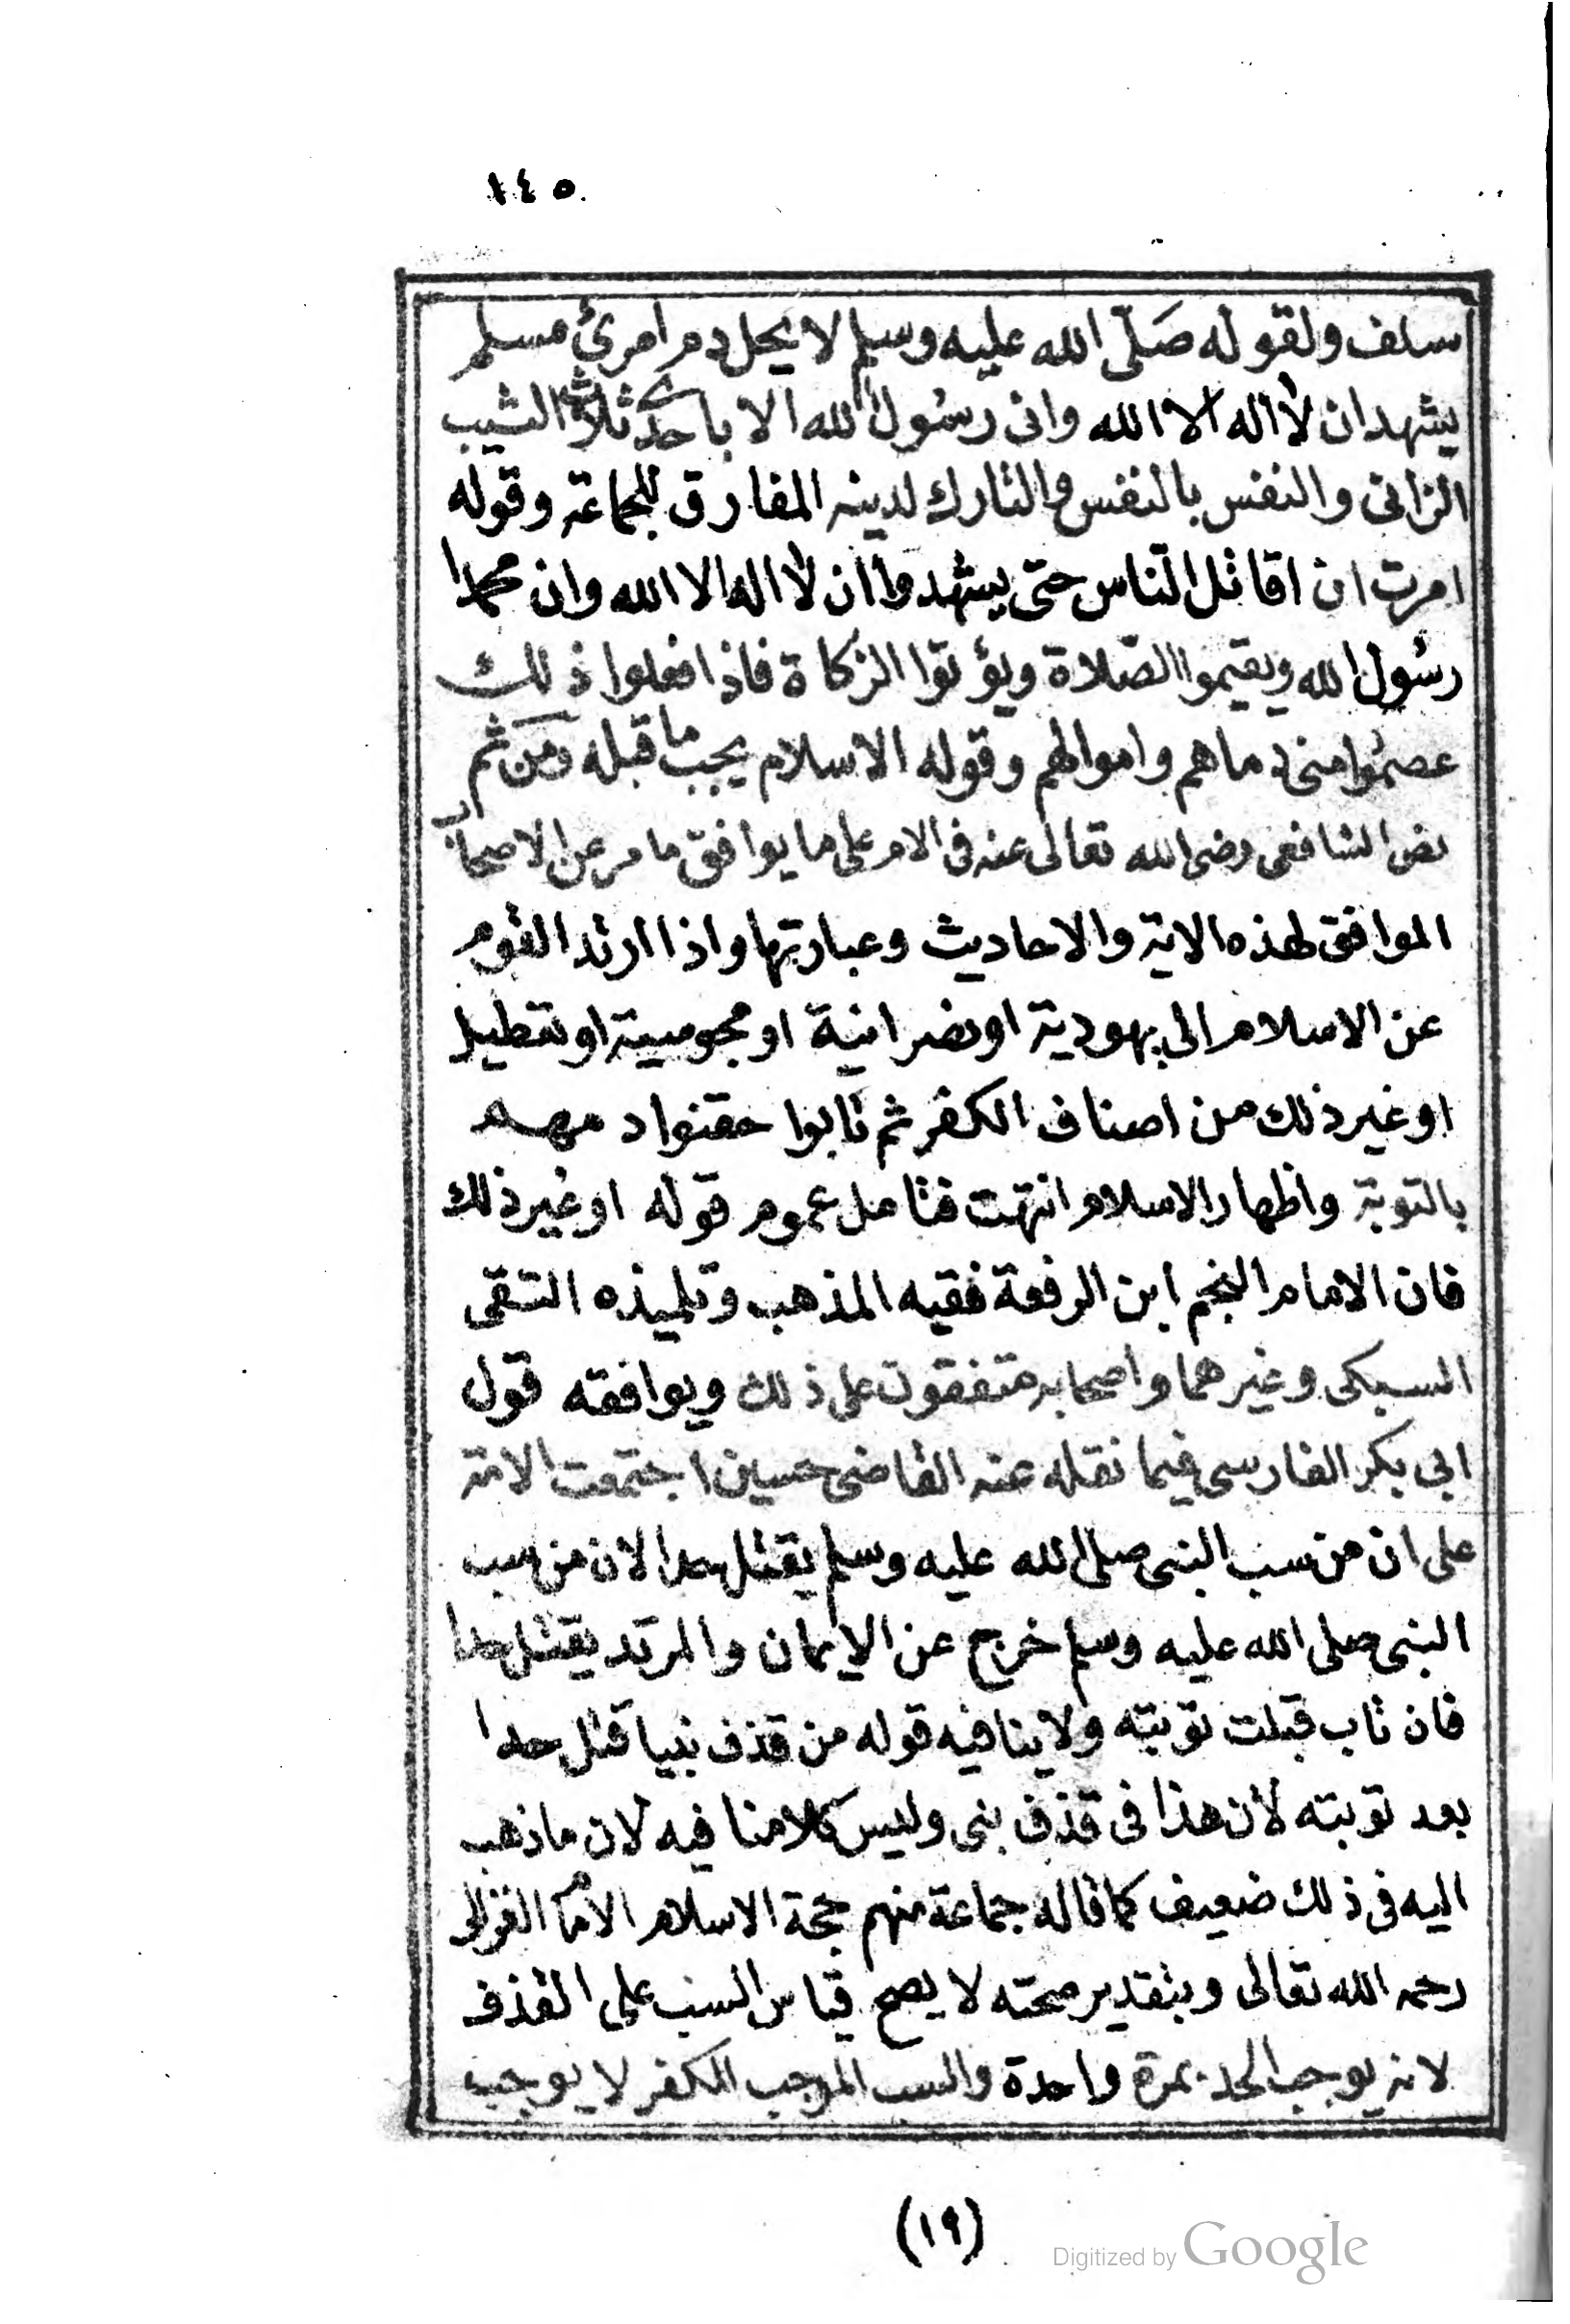 ١٤٥
سلف ولقوله صَلّى الله عليه وسلم لا يحل دم امرئ مسلم
يشهد ان لا اله الا الله وانى رسُول الله الا باحدى ثلاث الثيب
الزانى والنفس بالنفس والتارك لدينه المفارق للجماعة وقوله
امرت ان اقاتل الناس حتى يشهدوا ان لا اله الا الله وان محمدا
رسُول الله ويقيموا الصّلاة ويؤتوا الزكاة فاذا فعلوا ذلك
عصمُوا منى دماهم واموالهم وقوله الاسلام يجب ما قبله ومن ثم
نص الشافعى رضى الله تعالى عنه فى الام على ما يوافق ما مر عن الاصحاب
الموافق لهذه الاية والاحاديث وعبارتها واذا ارتد القوم
عن الاسلام الى يهودية او نصرانية او مجوسية او تعطيل
او غير ذلك من اصناف الكفر ثم تابوا حقنوا دمهم
بالتوبة واظهار الاسلام انتهت فتامل عموم قوله او غير ذلك
فان الامام النجم ابن الرفعة فقيه المذهب وتلميذه التقى
السبكى وغيرهما واصحابه متفقون على ذلك ويوافقه قول
ابى بكر الفارسى فيما نقله عنه القاضى حسين اجتمعت الامة
على ان من سب النبى صلى الله عليه وسلم يقتل حدا لان من سب
النبى صلى الله عليه وسلم خرج عن الايمان والمرتد يقتل حدا
فان تاب قبلت توبته ولا ينافيه قوله من قذف نبيا قتل حدا
بعد توبته لان هذا فى قذف نبى وليس كلامنا فيه لان ما ذهب
اليه فى ذلك ضعيف كما قاله جماعة منهم حجة الاسلام الامام الغزالى
رحمه الله تعالى وبتقدير صحته لا يصح قياس السب على القذف
لانه يوجب الحد بمرة واحدة والسب الموجب للكفر لا يوجب
(١٩)
Digitized by Google